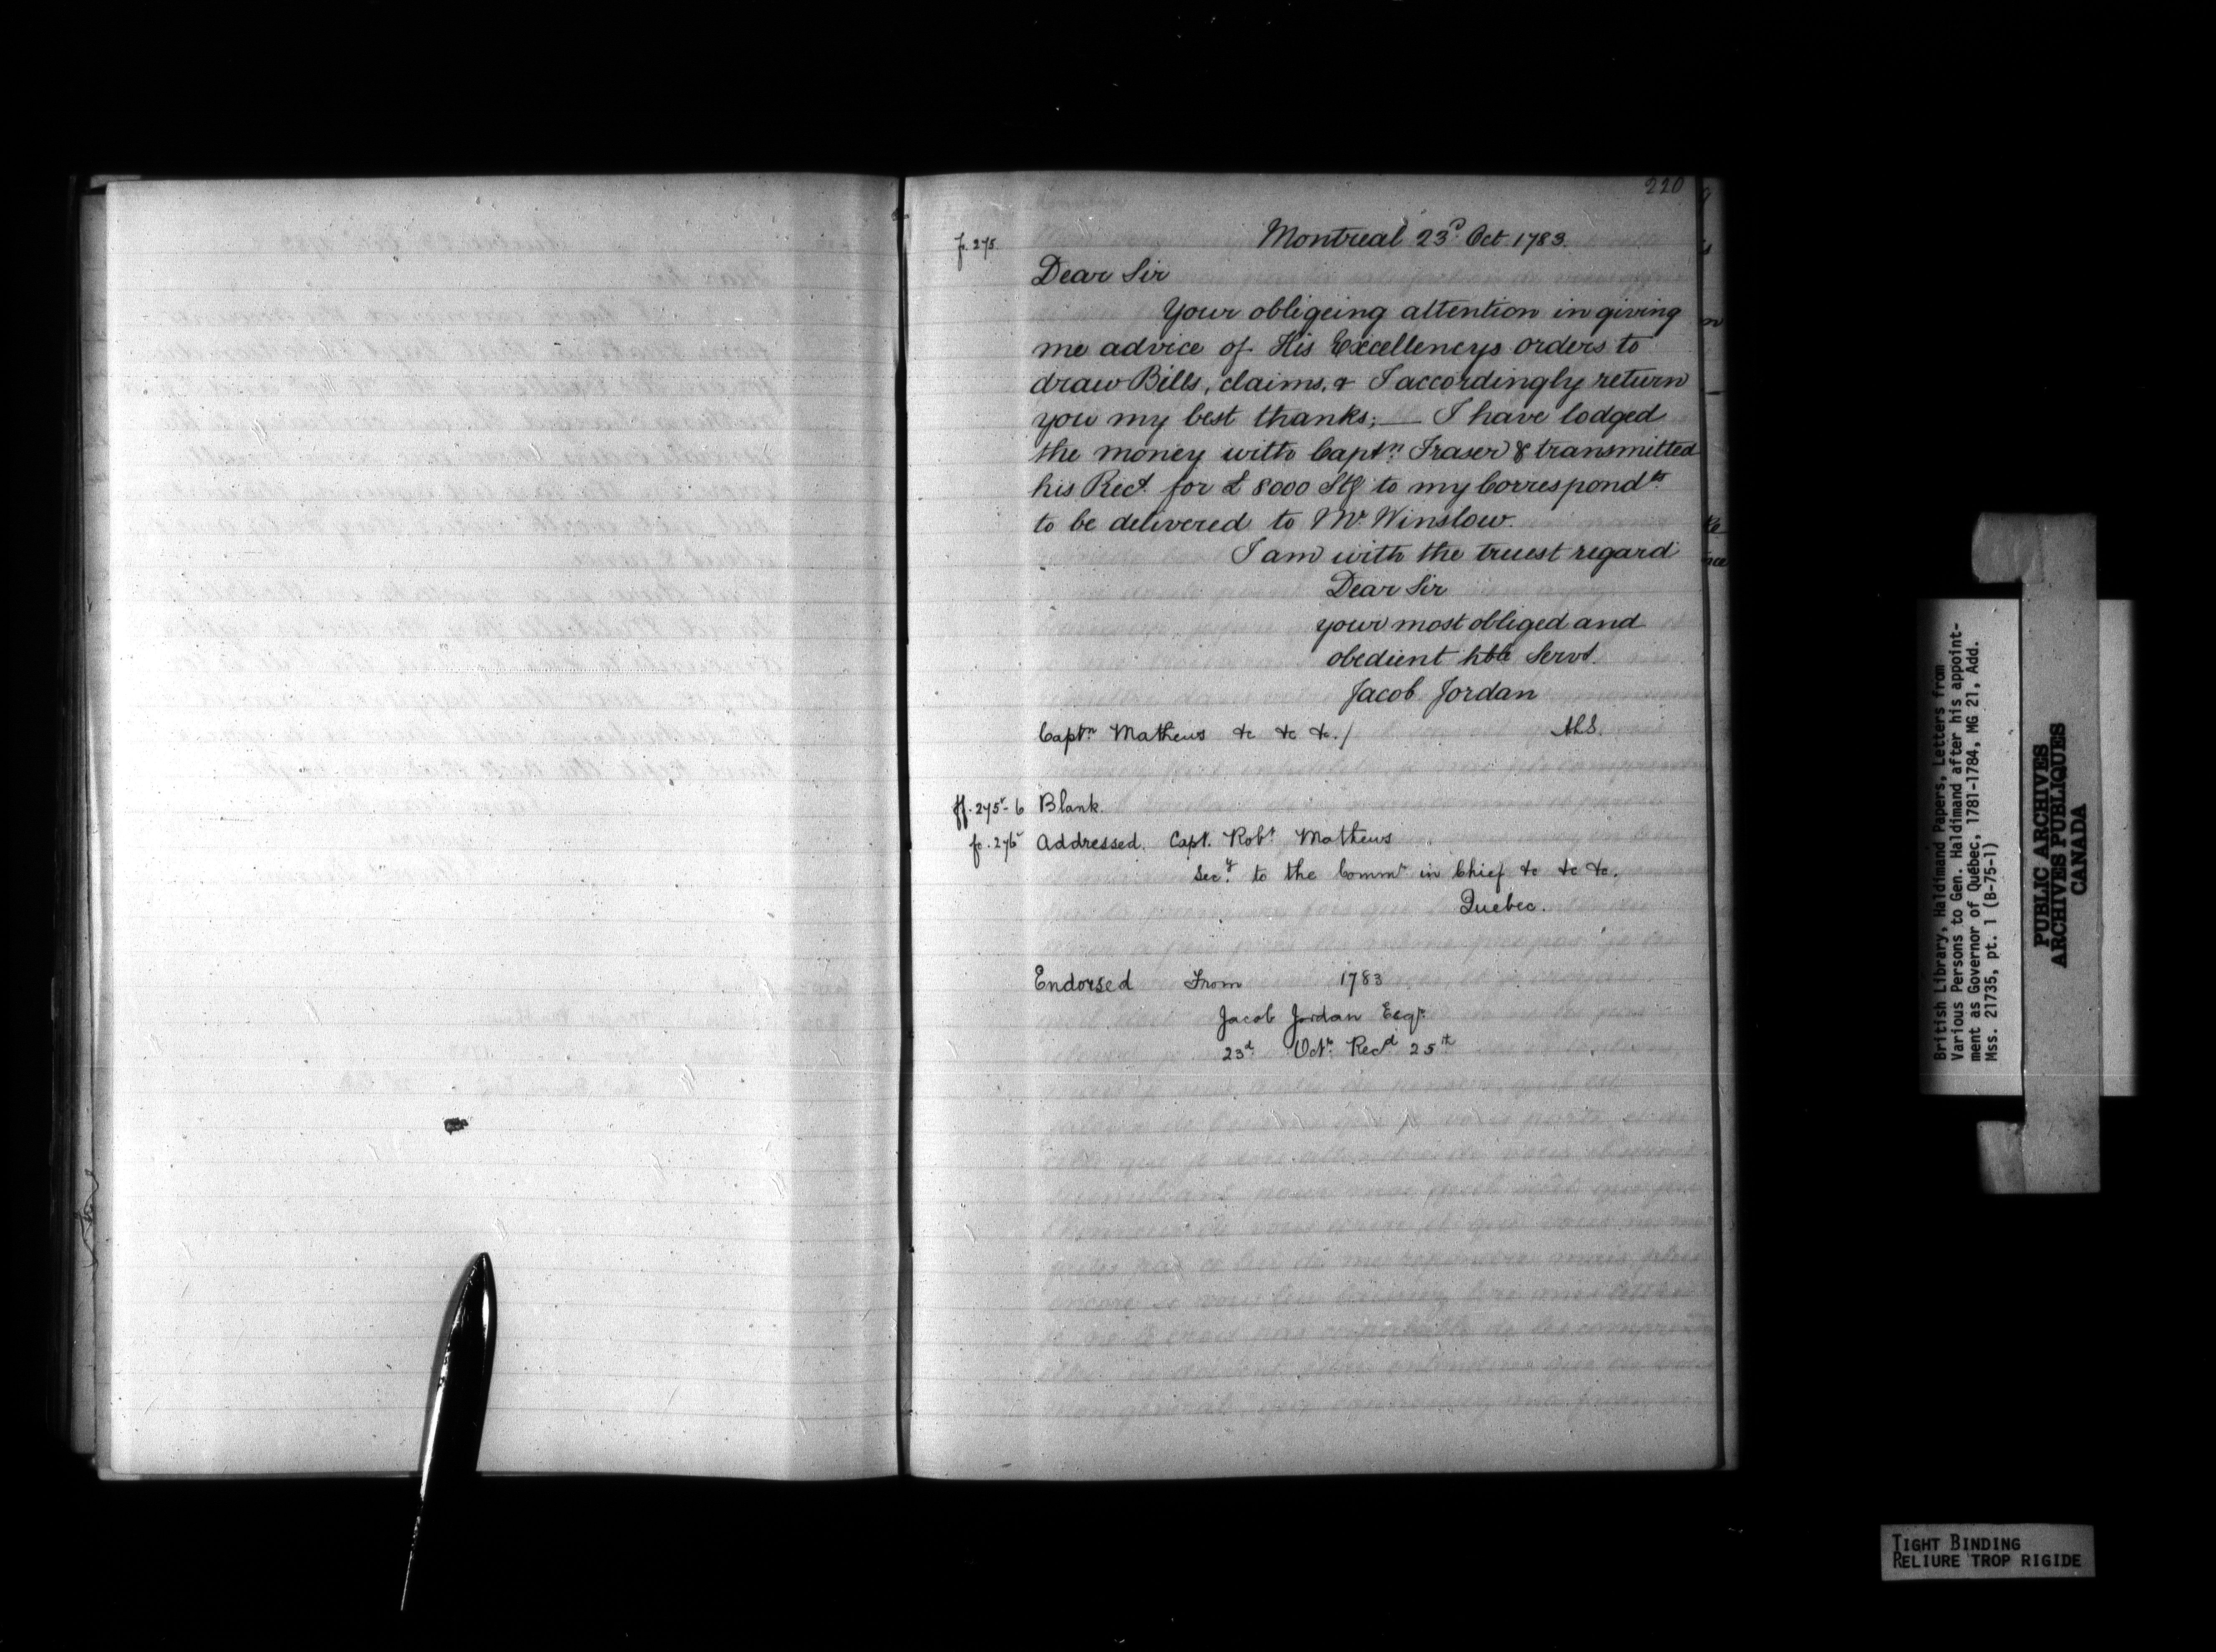 220
f. 275
Montreal 23d. Oct. 1783.
Dear Sir
Your obligeing attention in giving
me advice of His Excellencys orders to
draw Bills, claims, & I accordingly return
you my best thanks; — I have lodged
the money with Captn. Fraser & transmitted
his Rect. for £ 8000 Stg to my Correspondts
to be delivered to Mr. Winslow.
I am with the truest regard
Dear Sir
your most obliged and
obedient hble Servt.
Jacob Jordan
Captn. Mathews &c &c &c. /
ALS.
ff. 275v-6 Blank.
fo. 276v Addressed. Capt. Robt. Mathews
Secy. to the Commr in Chief &c &c &c.
Quebec.
Endorsed From 1783
Jacob Jordan Esqr.
23d. Octr. Recd 25th
British Library, Haldimand Papers, Letters from
Various Persons to Gen. Haldimand after his appoint-
ment as Governor of Québec, 1781-1784, MG 21, Add.
Mss. 21735, pt. 1 (B-75-1)
PUBLIC ARCHIVES
ARCHIVES PUBLIQUES
CANADA
TIGHT BINDING
RELIURE TROP RIGIDE